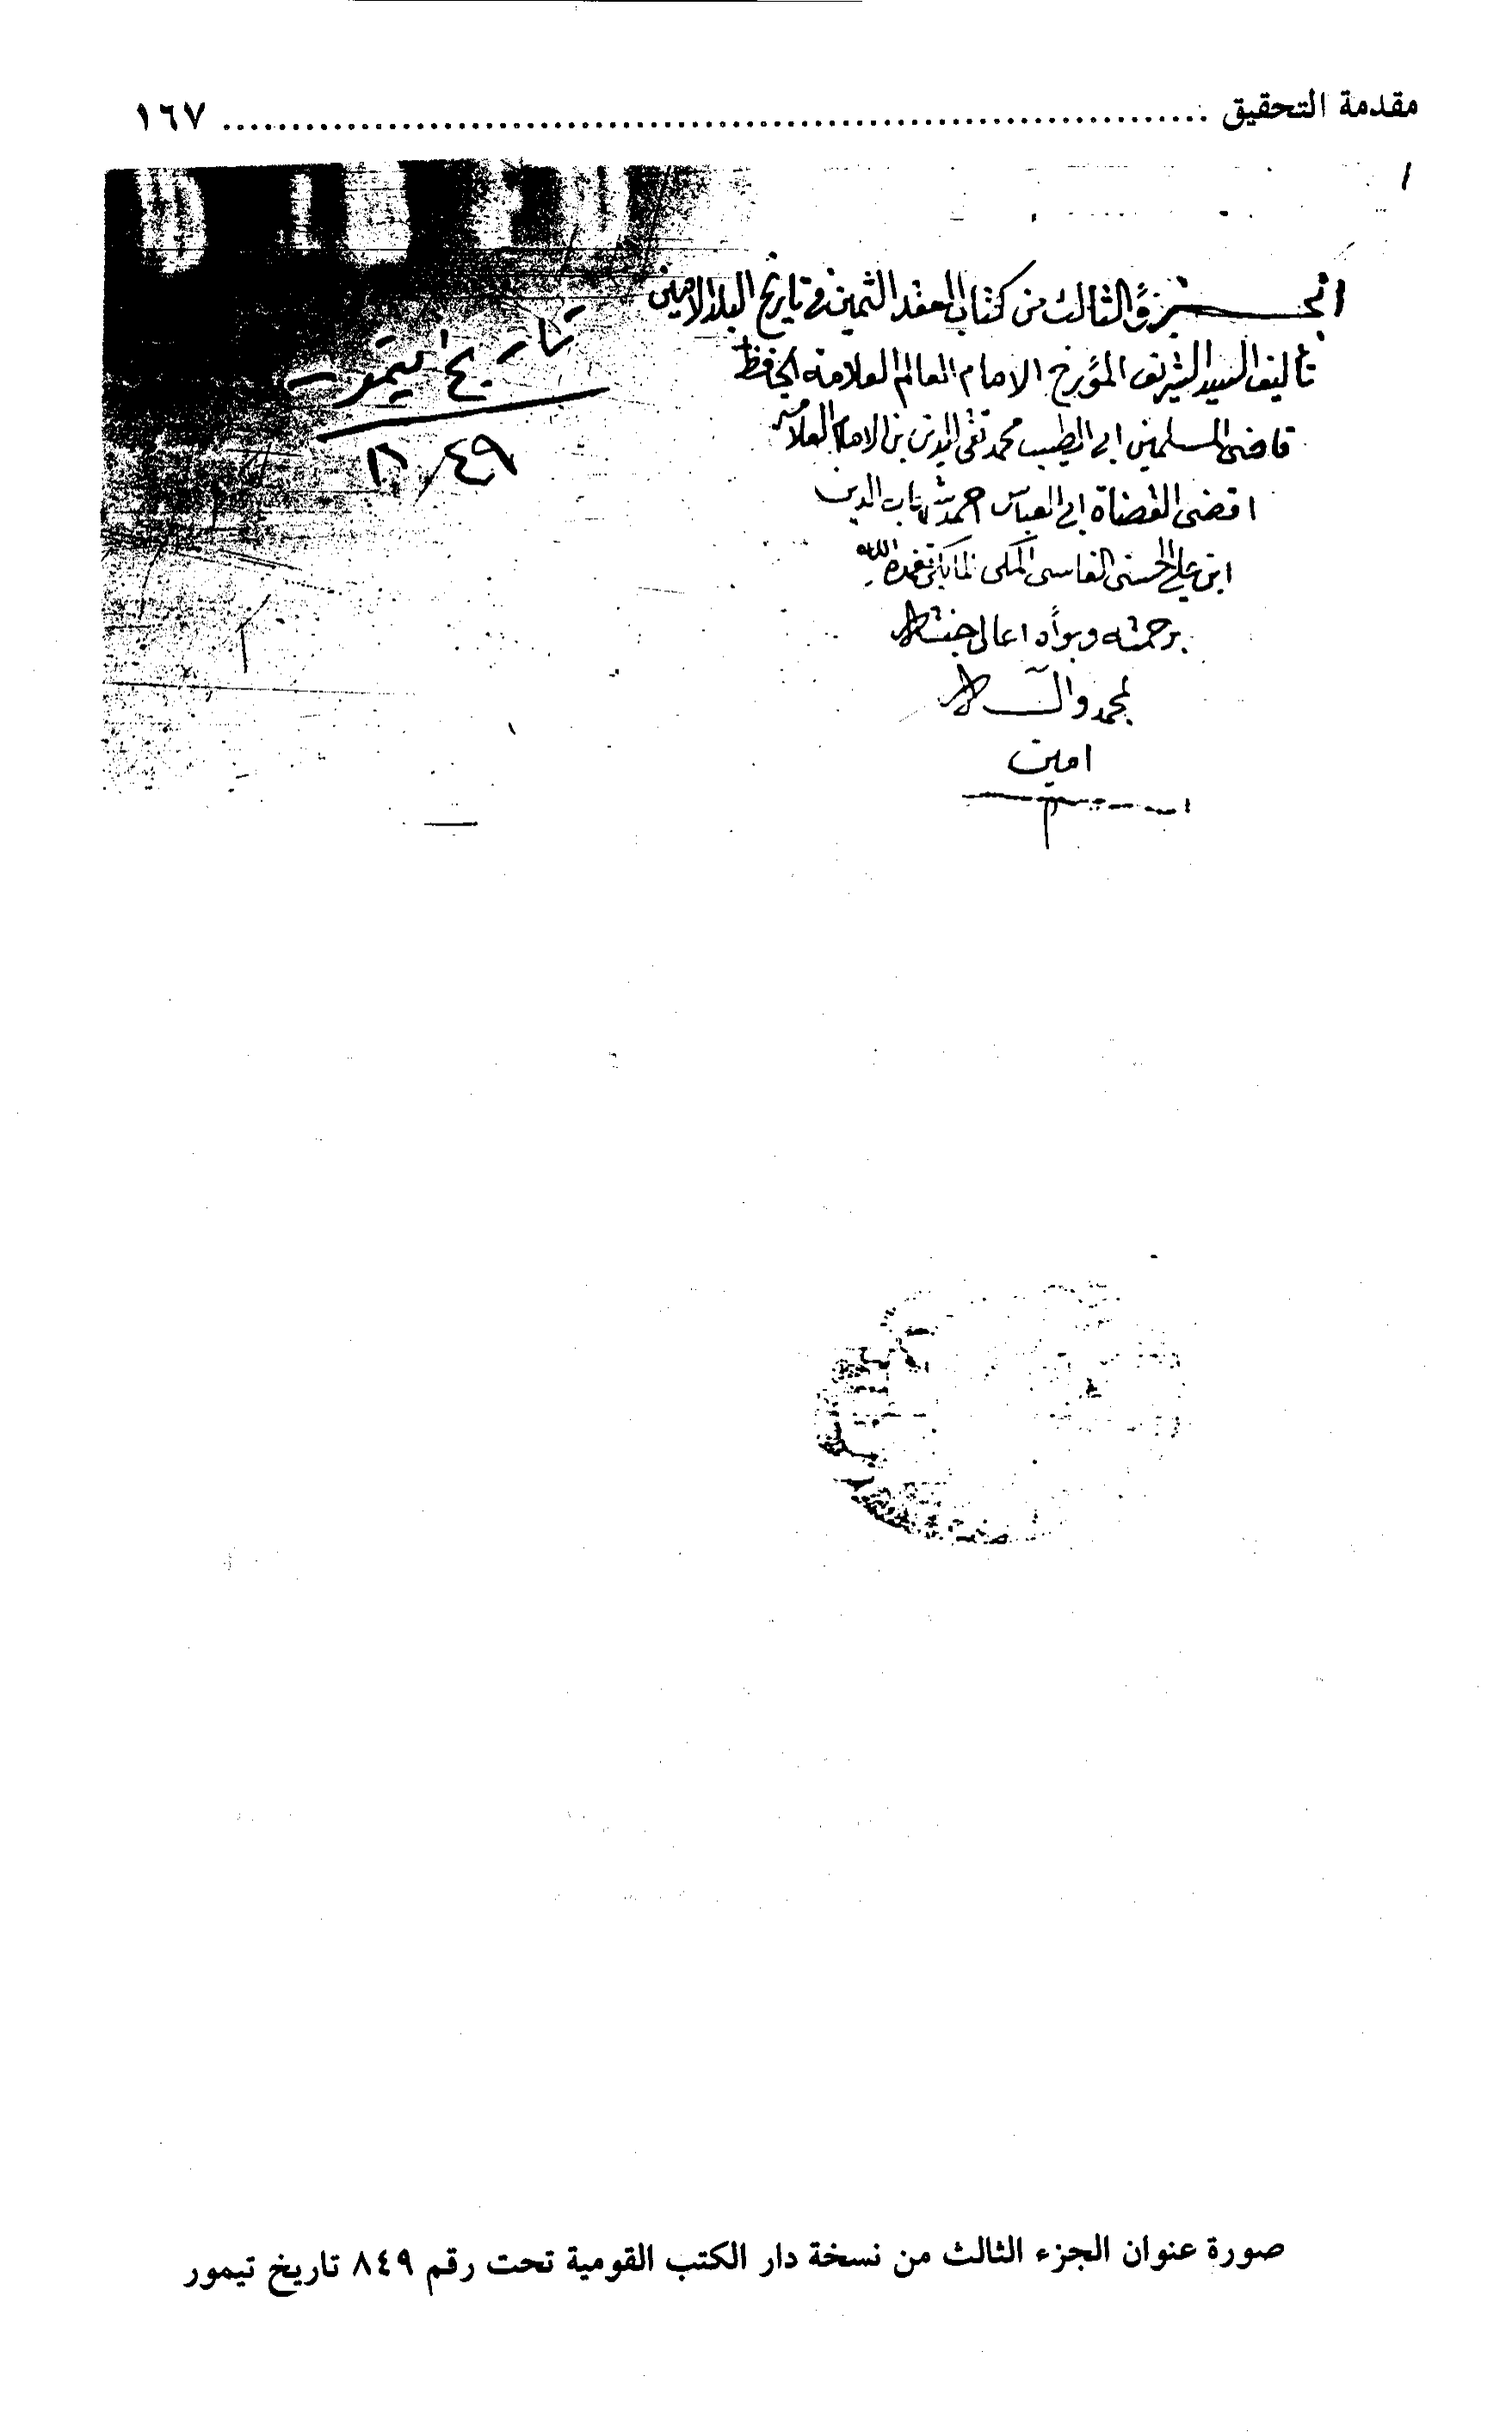 مقدمة التحقيق ........ ١٦٧
الجزؤ الثالث من كتاب العقد الثمين فى تاريخ البلد الامين
تأليف السيد الشريف المؤرخ الامام العالم العلامة الحافظ
قاضى المسلمين ابى الطيب محمد تقى الدين بن الامام العلامة
اقضى القضاة ابى العباس احمد شهاب الدين
ابن على الحسنى الفاسى المكى المالكى تغمده الله
برحمته وبوأه اعالى جنته
بمحمد وآله
امين
تاريخ تيمور
٨٤٩
صورة عنوان الجزء الثالث من نسخة دار الكتب القومية تحت رقم ٨٤٩ تاريخ تيمور